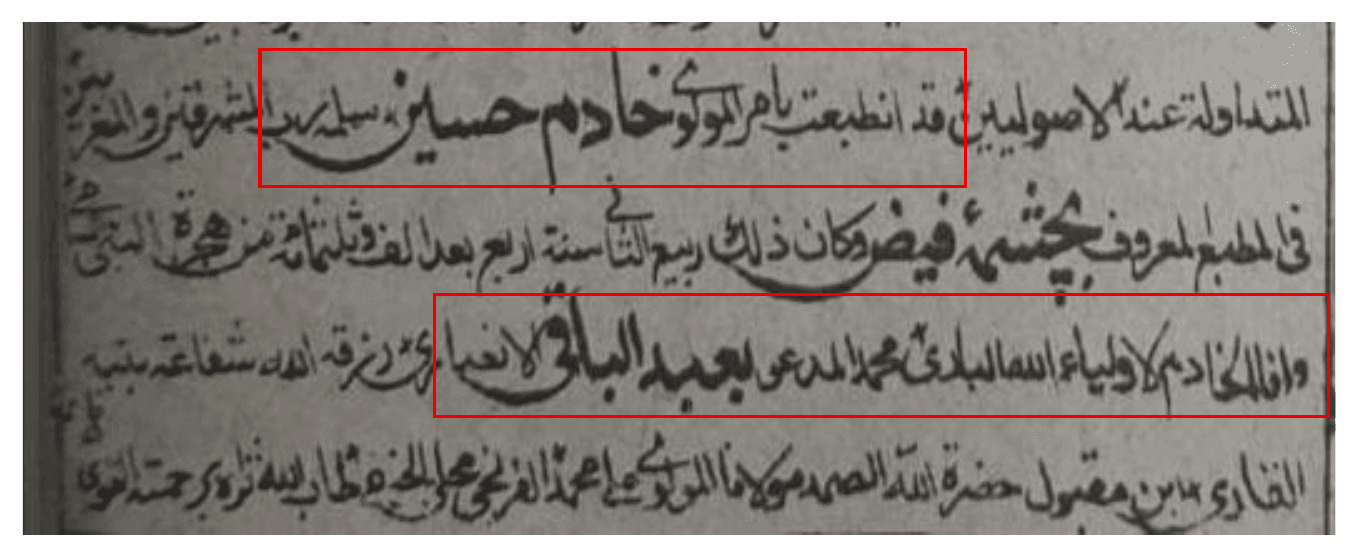 المتداولة عند الاصوليين قد انطبعت بامر المولوي خادم حسين سلمه رب المشرقين والمغربين
فى المطبع المعروف بچشمۂ فيض وكان ذلك ربيع الثانى سنة اربع بعد الف وثلثمائة من هجرة النبى
وانا الخادم لاولياء الله البارى محمد المدعو بعبد الباقى الانصارى رزقه الله شفاعة نبيه
القارى ابن مقبول حضرة الله الصمد مولانا المولوى على محمد الفرنجى محلى طاب الله ثراه برحمته القوى